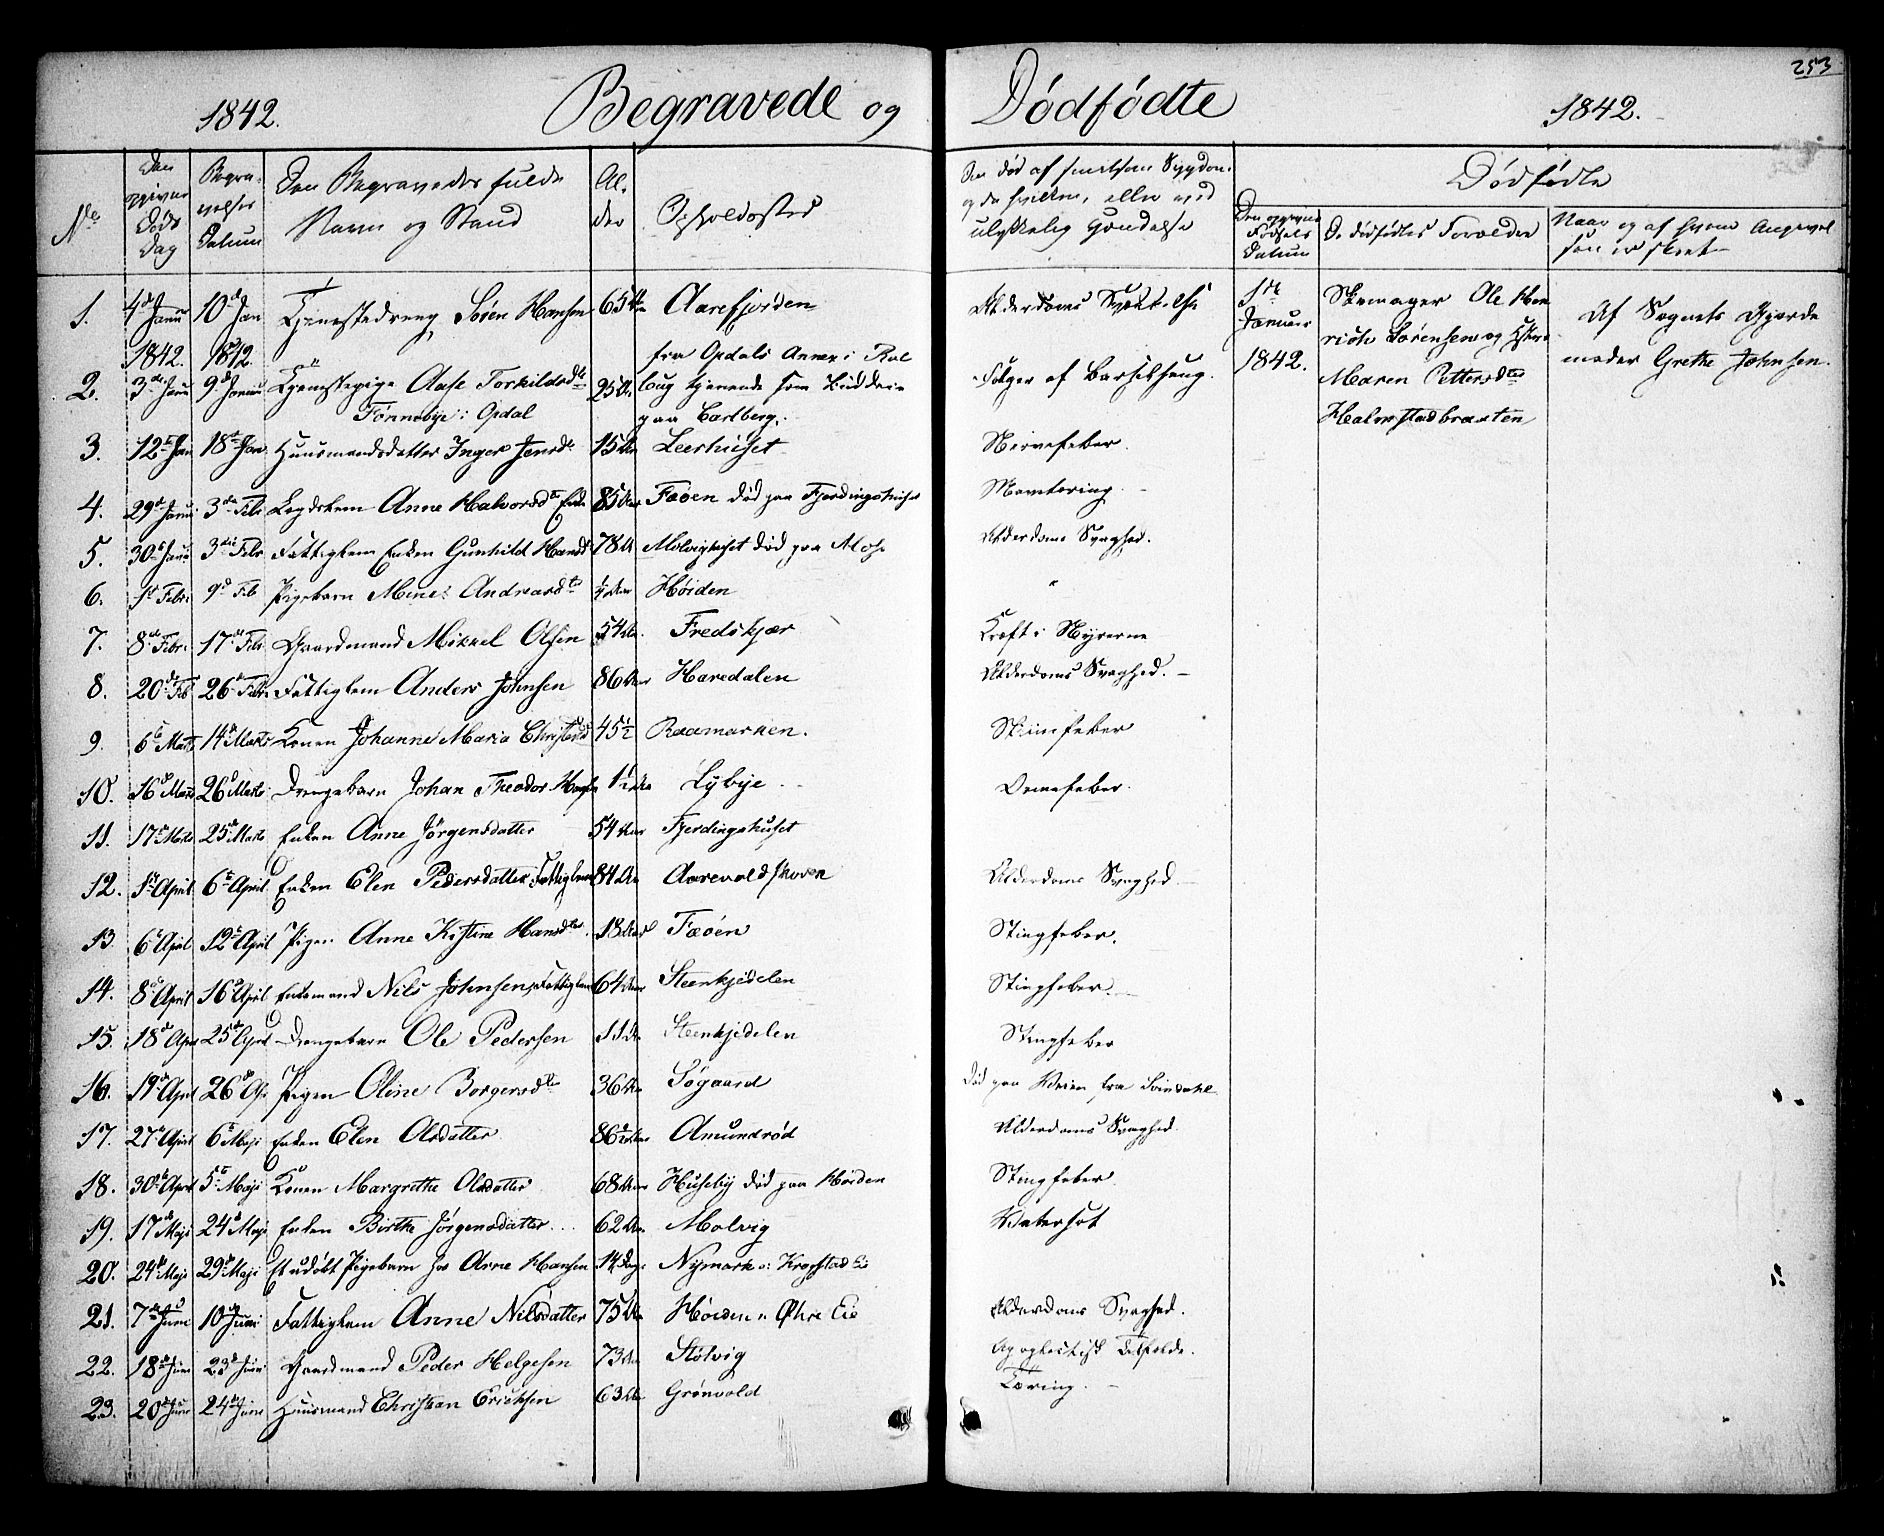 253
1842. Begravede og Dødfødte 1842.
No
Den opgivne Døds Dag
Begravelses Datum
Den Begravedes fulde Navn og Stand
Alder
Opholdssted
Om død af smitsom Sygdom og da hvilken, eller ved ulykkelig Hændelse
Dødfødte
Den opgivne Fødsels Datum
De dødfødtes Forældre
Naar og af hvem Angivelsen er skeet
1. 4de Januar 1842. 10de Jan 1842 Tjenestedreng Søren Hansen 65 Aar Aarefjorden Alderdoms Svækkelse
1ste Januar 1842. Skomager Ole Henrich Sørensen og Hustru Maren Pettersdtr Halmstadbraaten Af Sognets Gjordemoder Grethe Johnsen.
2. 3de Janu 9de Januar Tjenestepige Aase Torkildsdtr Tønnebye i Opdal 25 Aar fra Opdals Annex i Rolloug tjenende som Budeie paa Carlberg. Følger af Barselseng.
3. 12te Jan 18de Jan Huusmandsdatter Inger Jensdr 15 Aar Leerhuset Nervefeber.
4. 29de Janu 3die Febr Lægdslem Anne Halvorsdtr Enke 85 Aar Fæøen død paa Fjerdingshuset Mavetæring.
5. 30te Janu 3die Febr Fattiglem Enken Gunhild Hansdr 78 Aar Molvighuset død paa Moss Alderdoms Svaghed.
6. 1st Febr. 9de Feb Pigebarn Mine Andreasdtr ¼ Aar Høiden "
7. 8de Febr. 17de Febr Gaardmand Mikkel Olsen 54 Aar. Fredskjær Kræft i Nyrerne
8. 20de Feb 26de Febr. Fattiglem Anders Johnsen 86 Aar Haredalen Alderdoms Svaghed.
9. 6te Marts 14de Marts Konen Johanne Maria Christensd 45½ Raamarken. Skiinfeber
10. 16de Marts 26de Marts Drengebarn Johan Theodor Hansen 1½ Aar Lybye Ormefeber.
11. 17de Marts 25de Marts Enken Anne Jørgensdatter 54 Aar Fjerdingshuset
12. 1st April 6te April Enken Elen Pedersdatter, Fattiglem 84 Aar Aarevoldskoven Alderdoms Svaghed
13. 6te April 12te April Pigen Anne Kistine Hansdtr. 18 Aar Fæøen Stingfeber.
14. 8de April 16de April Enkemand Nils Johnsen, Fattiglem 64 Aar Steenkjedelen Stingfeber.
15. 18de April 25de April Drengebarn Ole Pedersen 11 Aar Steenkjedelen Stingfeber
16. 19de April 26de Ap Pigen Oline Borgersdtr 36 Aar Søgaard Død paa Veien fra Svindahl
17. 27de April 6te Maji Enken Elen Olsdatter 86½ Aar Amundrød Alderdoms Svaghed.
18. 30te April 5te Maji Konen Margrethe Olsdatter 68 Aar Huseby død paa Høiden Stingfeber
19. 17de Maji 24de Maji Enken Birthe Jørgensdatter 62 Aar Molvig Vatersot
20. 24de Maji 29de Maji Et udøbt Pigebarn for Arne Hansen 14 Dage Nymark u: Kragstad Eie
21. 7de Juni 10de Juni Fattiglem Anne Nilsdatter 75 Aar Høiden u: Øhre Eie Alderdoms Svaghed.
22. 18de Juni 23de Juni Gaardmand Peder Helgesen 73 Aar Stølvig Apoplectisk Tilfælde.
23. 20de Juni 24de Juni Huusmand Christian Erichsen 63 Aar Grønvold Tæring.